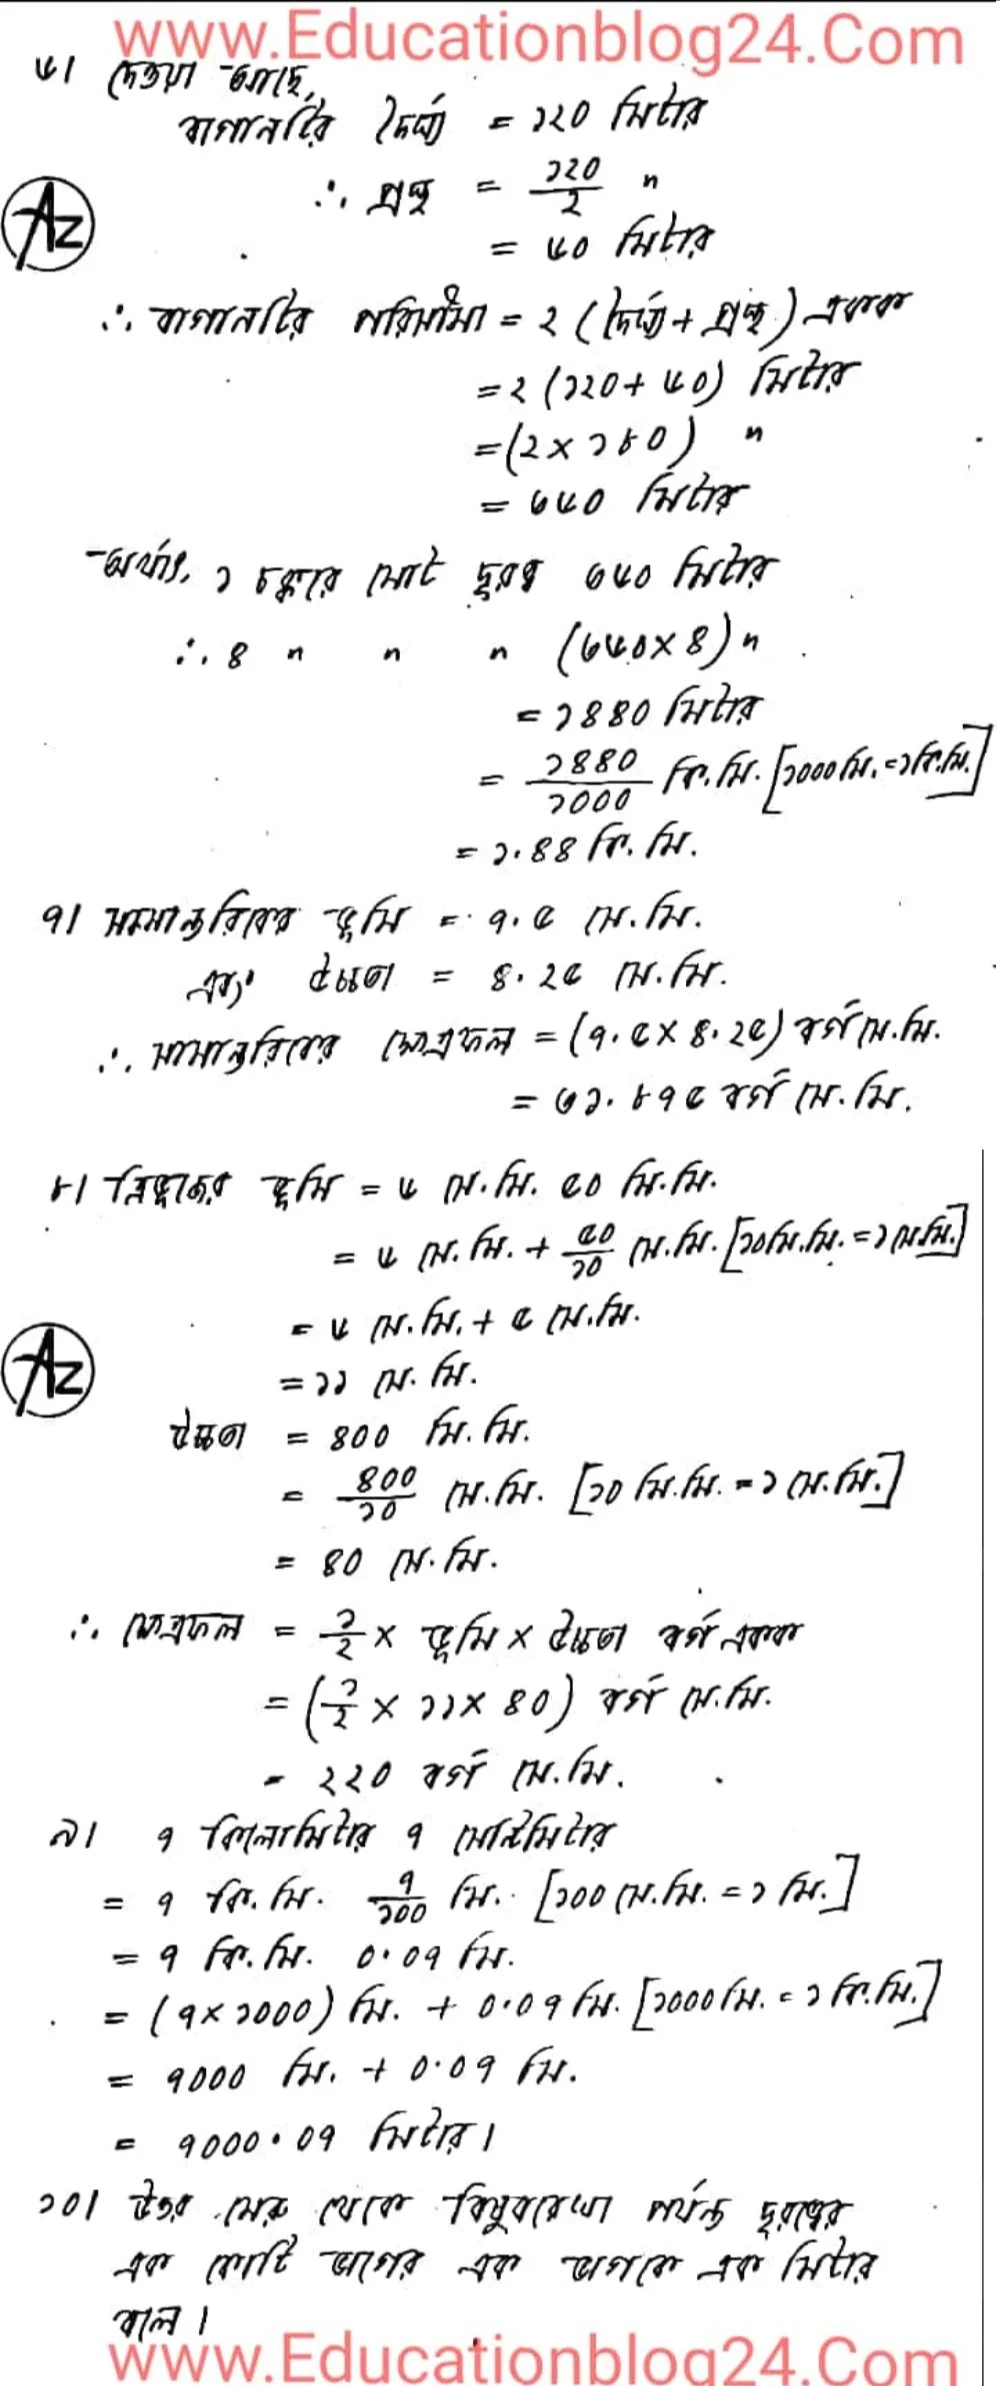 www.Educationblog24.Com
৬। দেওয়া আছে,
বাগানটির দৈর্ঘ্য = ১২০ মিটার
Az
∴ প্রস্থ = ১২০/২ "
= ৬০ মিটার
∴ বাগানটির পরিসীমা = ২ (দৈর্ঘ্য + প্রস্থ) একক
= ২ (১২০ + ৬০) মিটার
= (২ × ১৮০) "
= ৩৬০ মিটার
অর্থাৎ, ১ চক্করে মোট দূরত্ব ৩৬০ মিটার
∴ ৪ " " " (৩৬০ × ৪) "
= ১৪৪০ মিটার
= ১৪৪০/১০০০ কি.মি. [১০০০ মি. = ১ কি.মি.]
= ১.৪৪ কি. মি.
৭। সামান্তরিকের ভূমি = ৭.৫ সে.মি.
এবং উচ্চতা = ৪.২৫ সে.মি.
∴ সামান্তরিকের ক্ষেত্রফল = (৭.৫ × ৪.২৫) বর্গ সে.মি.
= ৩১.৮৭৫ বর্গ সে.মি.
৮। ত্রিভুজের ভূমি = ৬ সে.মি. ৫০ মি.মি.
= ৬ সে.মি. + ৫০/১০ সে.মি. [১০মি.মি. = ১ সে.মি.]
= ৬ সে.মি. + ৫ সে.মি.
Az
= ১১ সে. মি.
উচ্চতা = ৪০০ মি.মি.
= ৪০০/১০ সে.মি. [১০ মি.মি. = ১ সে.মি.]
= ৪০ সে.মি.
∴ ক্ষেত্রফল = ১/২ × ভূমি × উচ্চতা বর্গ একক
= (১/২ × ১১ × ৪০) বর্গ সে.মি.
= ২২০ বর্গ সে.মি.
৯। ৭ কিলোমিটার ৭ সেন্টিমিটার
= ৭ কি.মি. ৭/১০০ মি. [১০০ সে.মি. = ১ মি.]
= ৭ কি.মি. ০.০৭ মি.
= (৭ × ১০০০) মি. + ০.০৭ মি. [১০০০ মি. = ১ কি.মি.]
= ৭০০০ মি. + ০.০৭ মি.
= ৭০০০.০৭ মিটার।
১০। উত্তর মেরু থেকে বিষুবরেখা পর্যন্ত দূরত্বের
এক কোটি ভাগের এক ভাগকে এক মিটার
বলে।
www.Educationblog24.Com